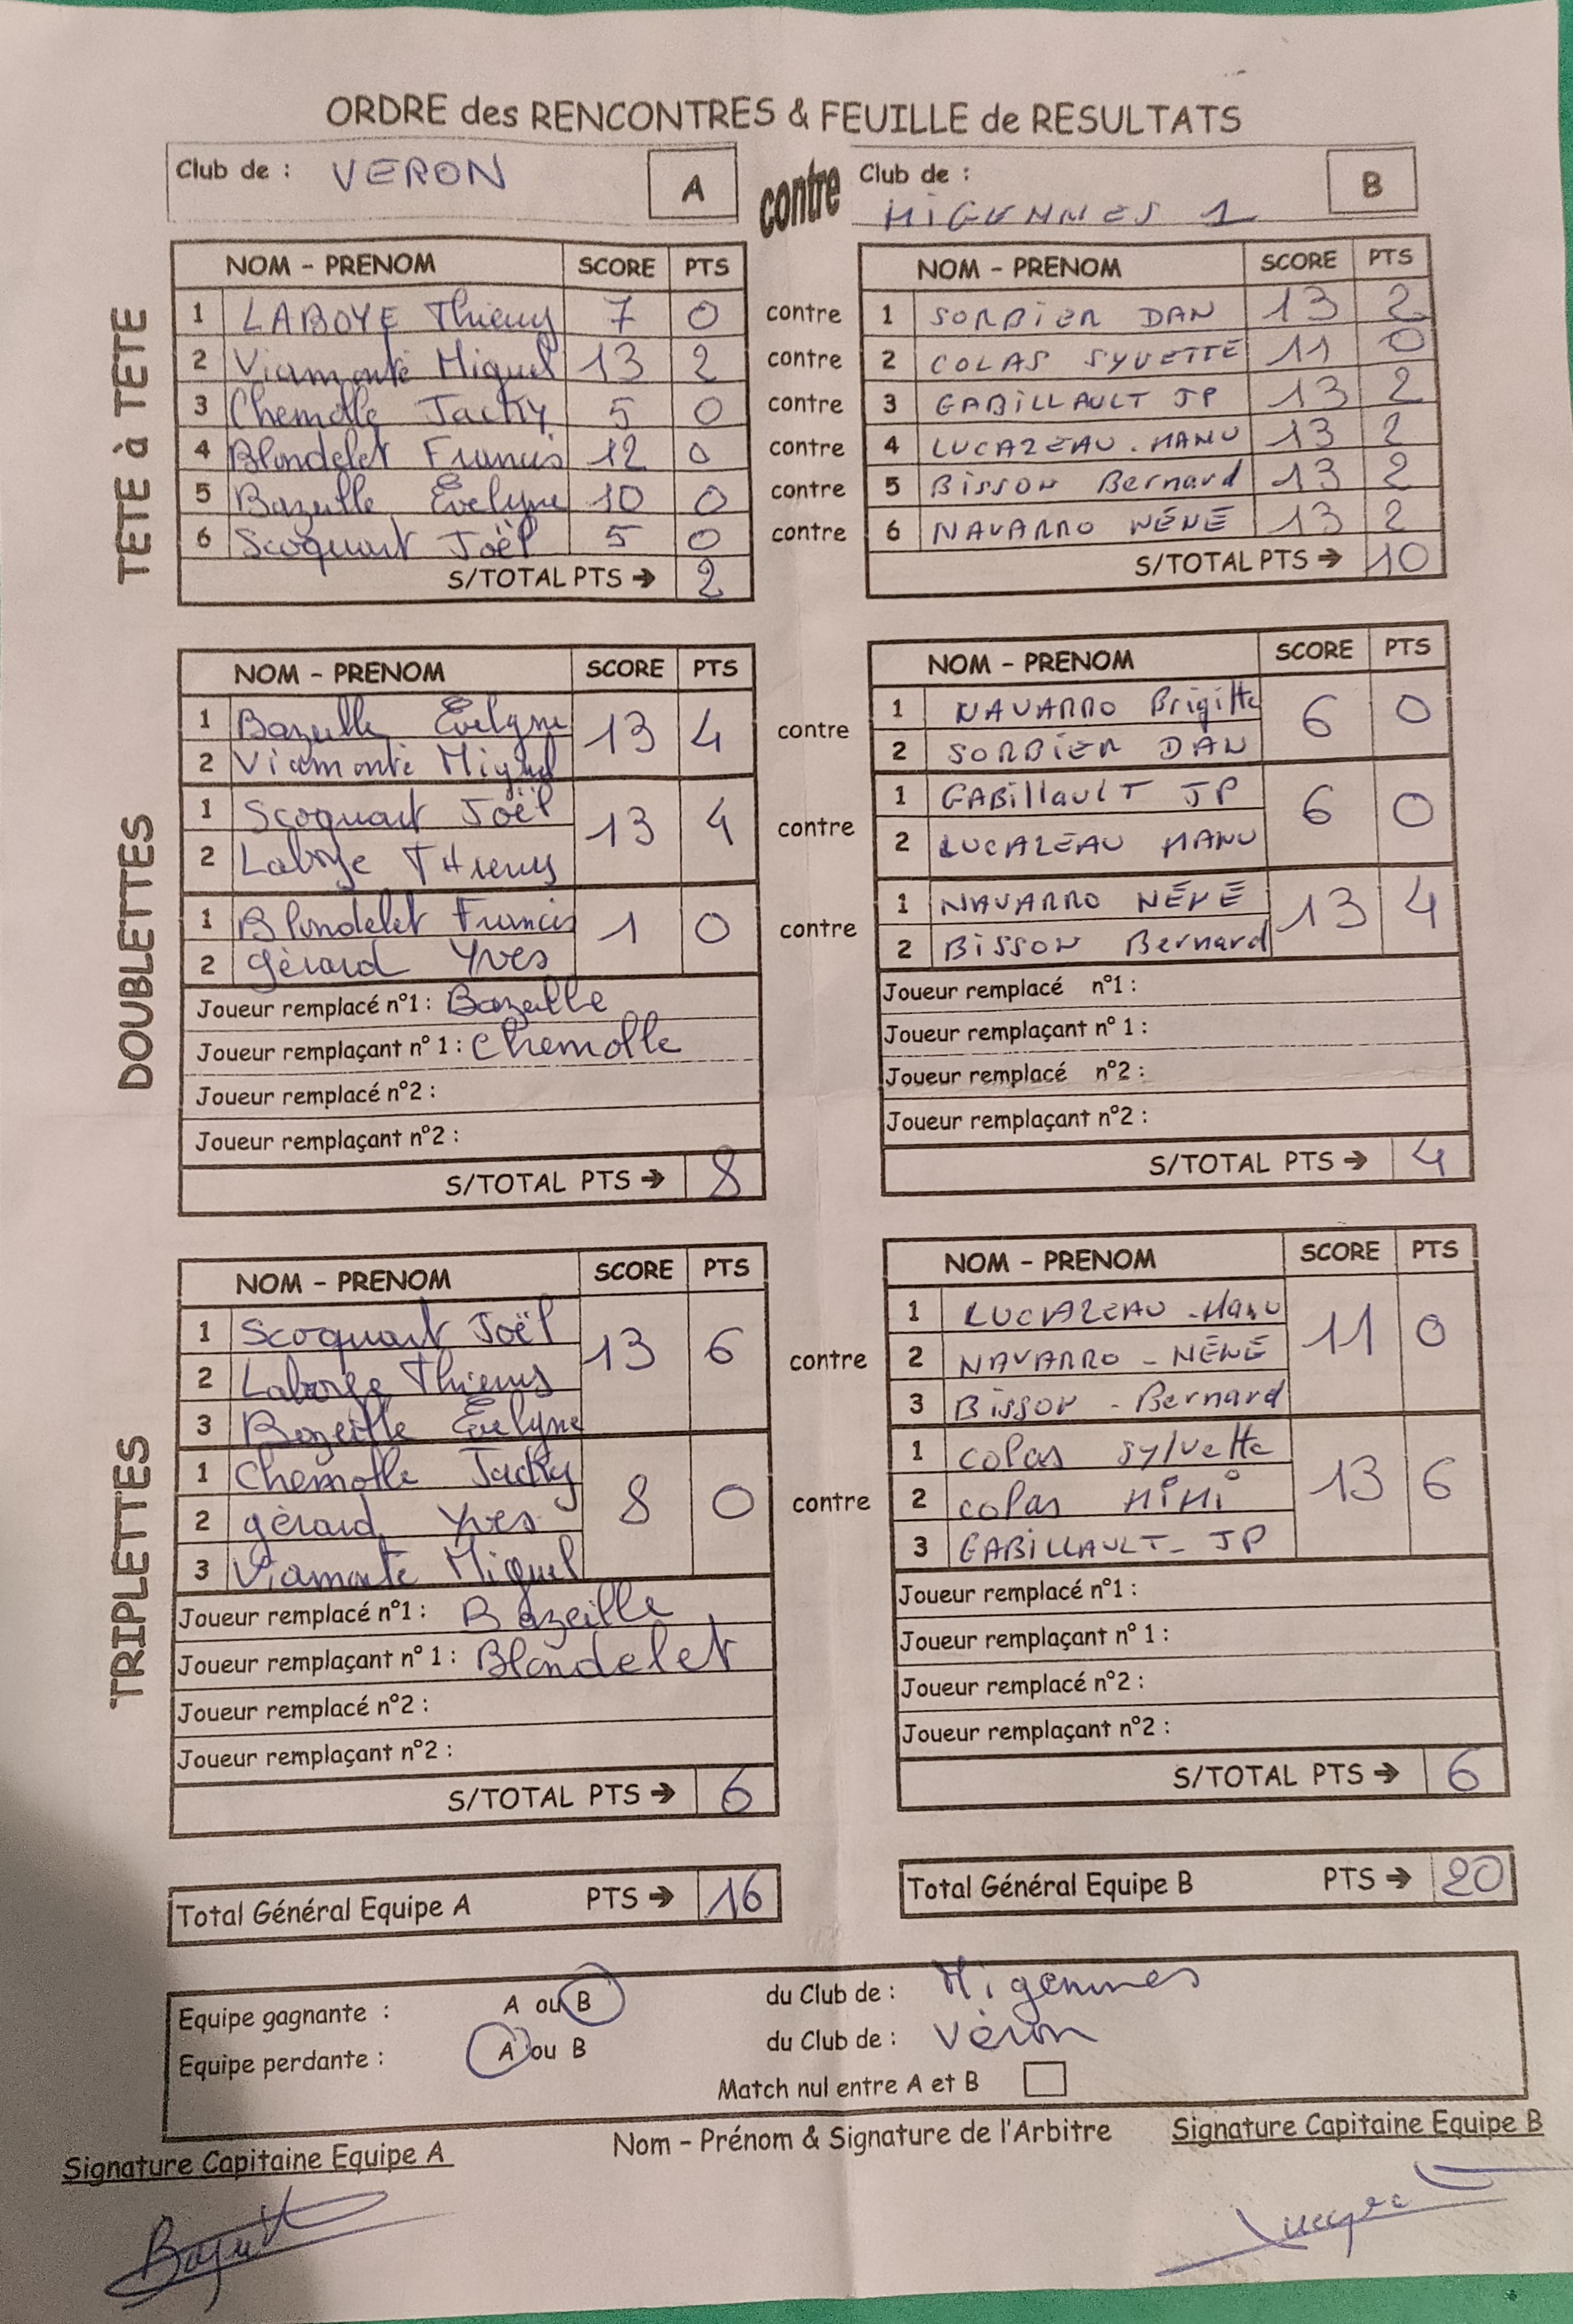 ORDRE des RENCONTRES & FEUILLE de RESULTATS
Club de : VERON A contre Club de : MIGENNES 1 B
TETE à TETE
NOM - PRENOM SCORE PTS NOM - PRENOM SCORE PTS
1 LABOYE Thierry 7 0 contre 1 SORBIER DAN 13 2
2 Viamonté Miguel 13 2 contre 2 COLAS SYVETTE 11 0
3 Chemolle Jacky 5 0 contre 3 GABILLAULT JP 13 2
4 Blondelet Francis 12 0 contre 4 LUCAZEAU . MANU 13 2
5 Bazeille Evelyne 10 0 contre 5 BISSON Bernard 13 2
6 Scoquart Joël 5 0 contre 6 NAVARRO NÉNÉ 13 2
S/TOTAL PTS → 2 S/TOTAL PTS → 10
DOUBLETTES
NOM - PRENOM SCORE PTS NOM - PRENOM SCORE PTS
1 Bazeille Evelyne 13 4 contre 1 NAVARRO Brigitte 6 0
2 Viamonté Miguel 2 SORBIER DAN
1 Scoquart Joël 13 4 contre 1 GABillauLT JP 6 0
2 Laboye THierry 2 LUCAZEAU MANU
1 Blondelet Francis 1 0 contre 1 NAVARRO NÉNÉ 13 4
2 gérard Yves 2 BISSON Bernard
Joueur remplacé n°1 : Bazeille Joueur remplacé n°1 :
Joueur remplaçant n° 1 : Chemolle Joueur remplaçant n° 1 :
Joueur remplacé n°2 : Joueur remplacé n°2 :
Joueur remplaçant n°2 : Joueur remplaçant n°2 :
S/TOTAL PTS → 8 S/TOTAL PTS → 4
TRIPLETTES
NOM - PRENOM SCORE PTS NOM - PRENOM SCORE PTS
1 Scoquart Joël 13 6 contre 1 LUCAZEAU - Manu 11 0
2 Laboye Thierry 2 NAVARRO - NÉNÉ
3 Bazeille Evelyne 3 BISSON - Bernard
1 Chemolle Jacky 8 0 contre 1 colas sylvette 13 6
2 gérard Yves 2 colas MiMi
3 Viamonte Miguel 3 GABILLAULT - JP
Joueur remplacé n°1 : Bazeille Joueur remplacé n°1 :
Joueur remplaçant n° 1 : Blondelet Joueur remplaçant n° 1 :
Joueur remplacé n°2 : Joueur remplacé n°2 :
Joueur remplaçant n°2 : Joueur remplaçant n°2 :
S/TOTAL PTS → 6 S/TOTAL PTS → 6
Total Général Equipe A PTS → 16 Total Général Equipe B PTS → 20
Equipe gagnante : A ou B du Club de : Migennes
Equipe perdante : A ou B du Club de : Véron
Match nul entre A et B
Signature Capitaine Equipe A Nom - Prénom & Signature de l'Arbitre Signature Capitaine Equipe B